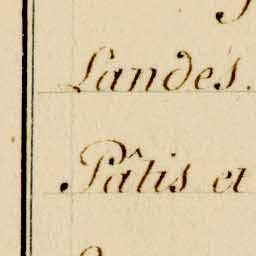 Landes.
Pâtis et